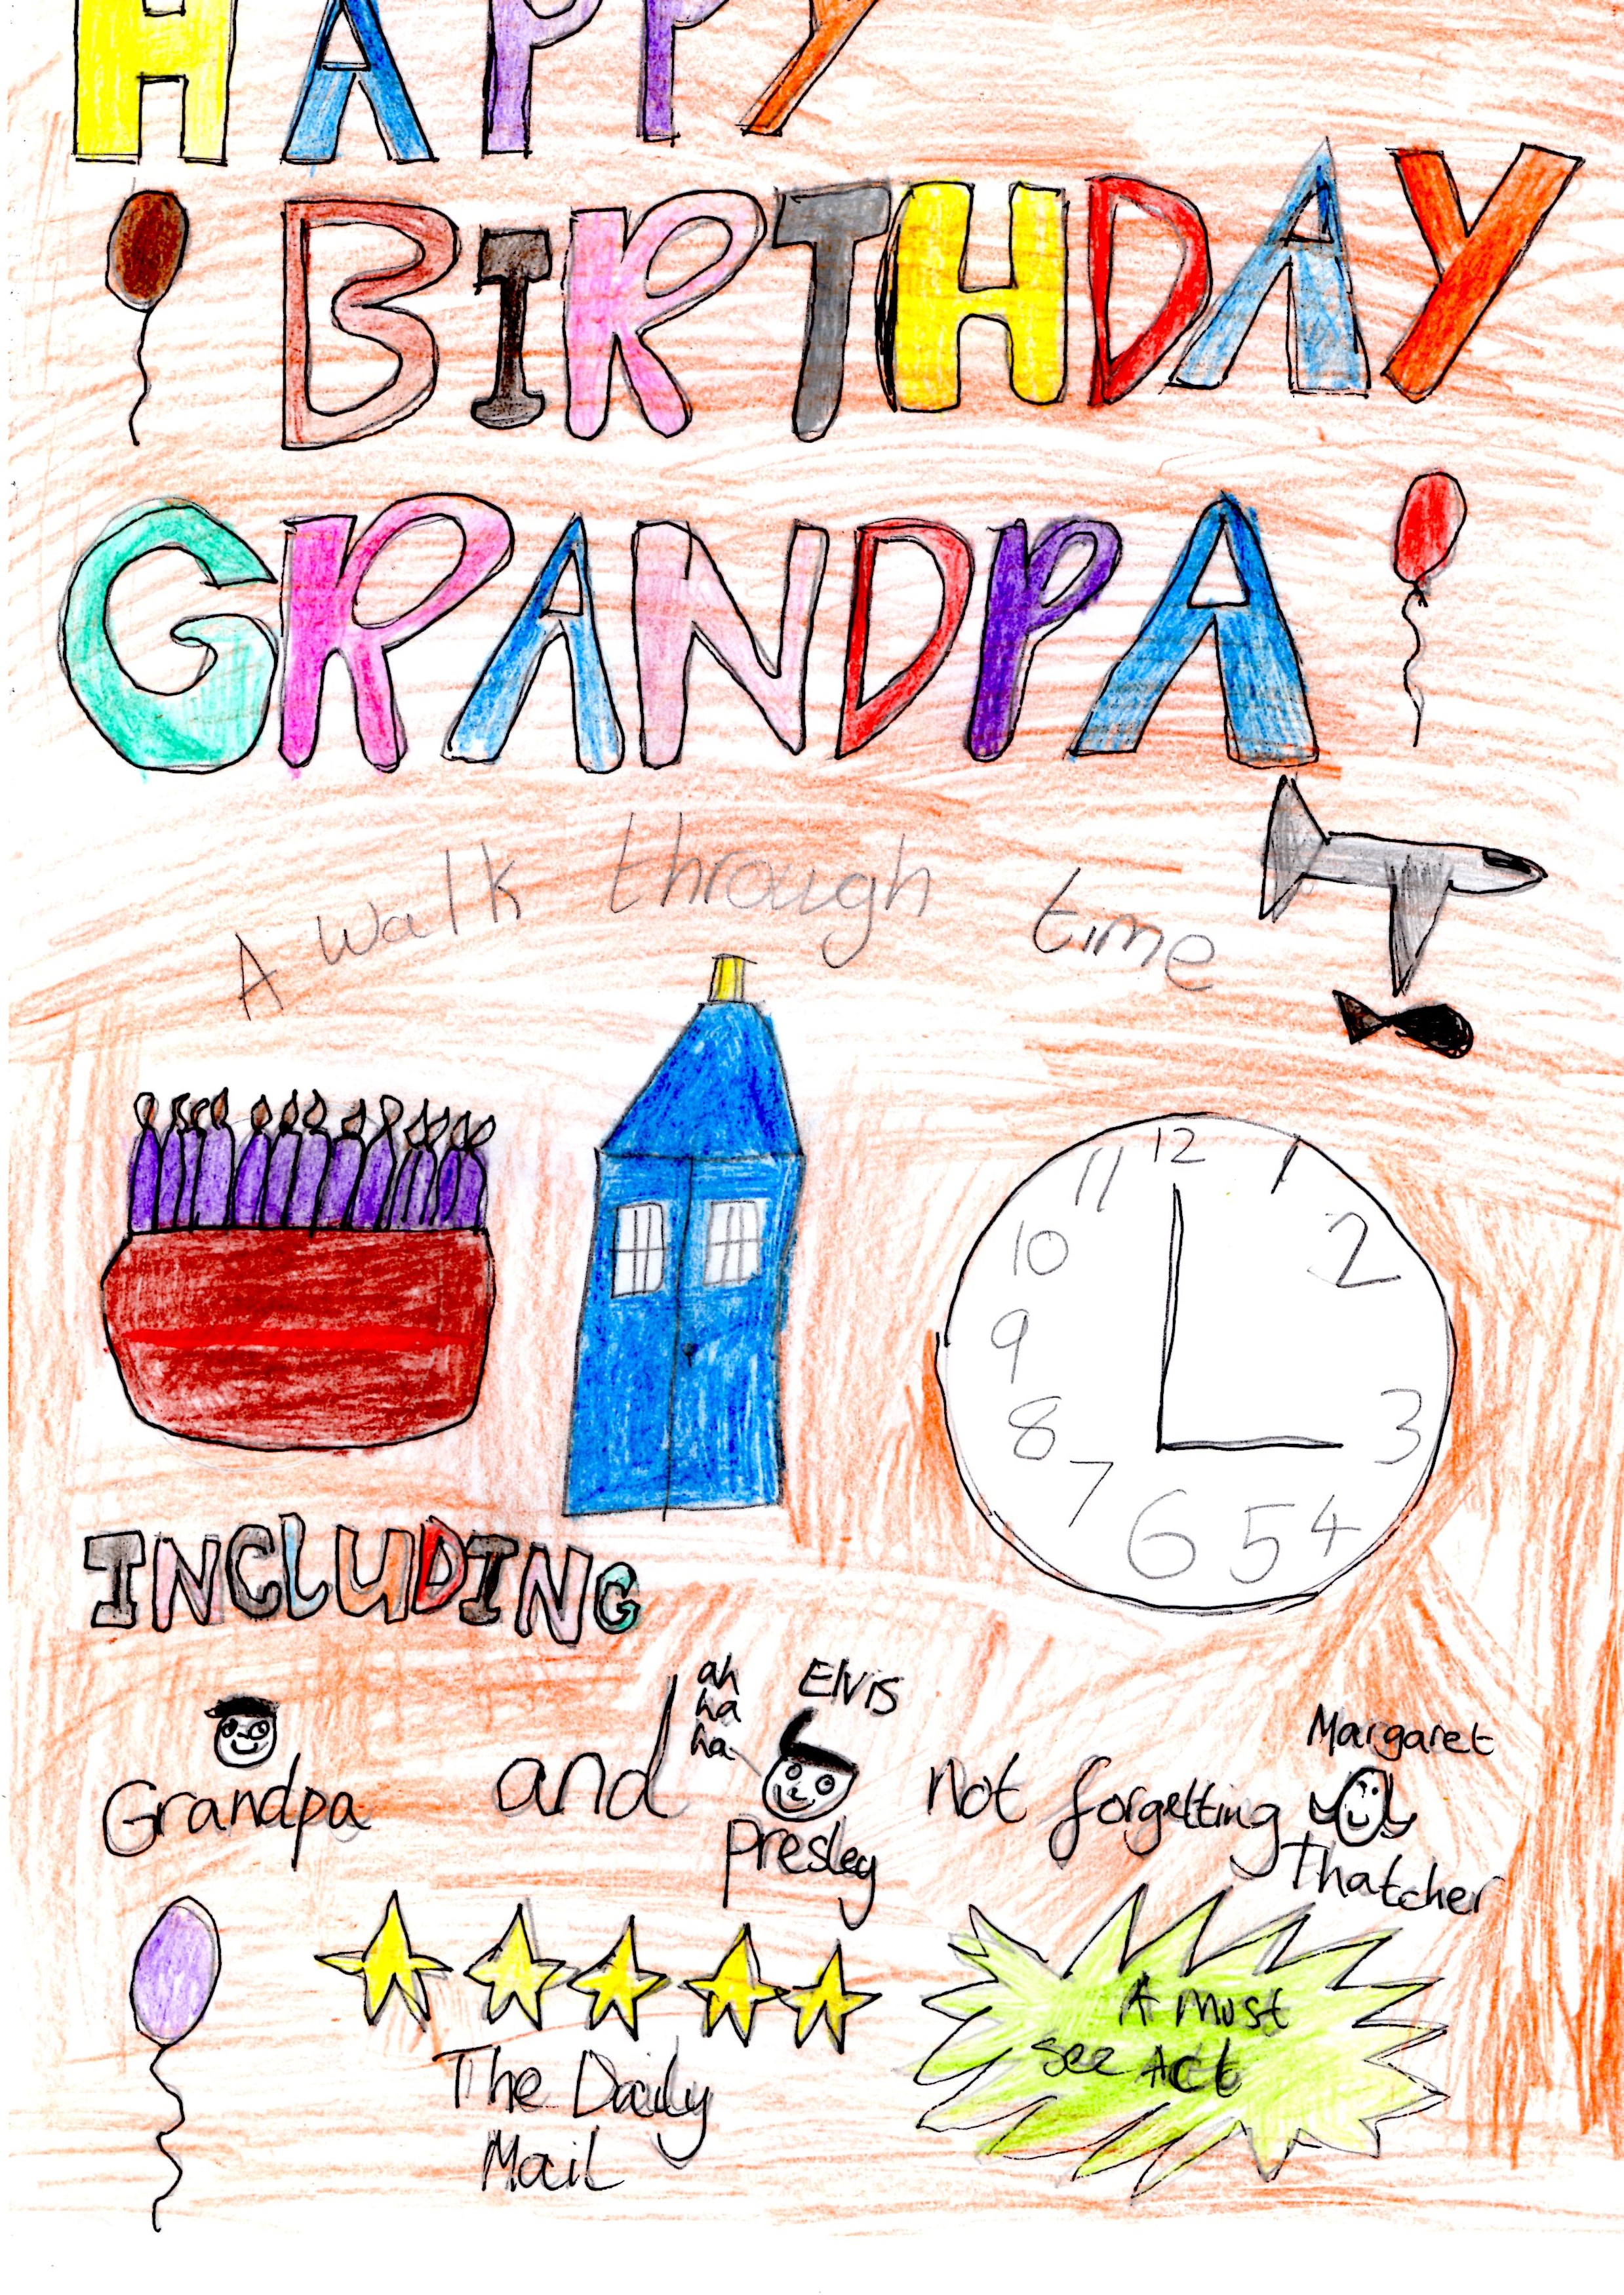 HAPPY
BIRTHDAY
GRANDPA
A walk through time
12
11 1
10 2
9
8 3
7 4
6 5
INCLUDING
ah
ha
ha
Elvis
Presley
Grandpa and not forgetting
Margaret
Thatcher
A must
see Act
The Daily
Mail